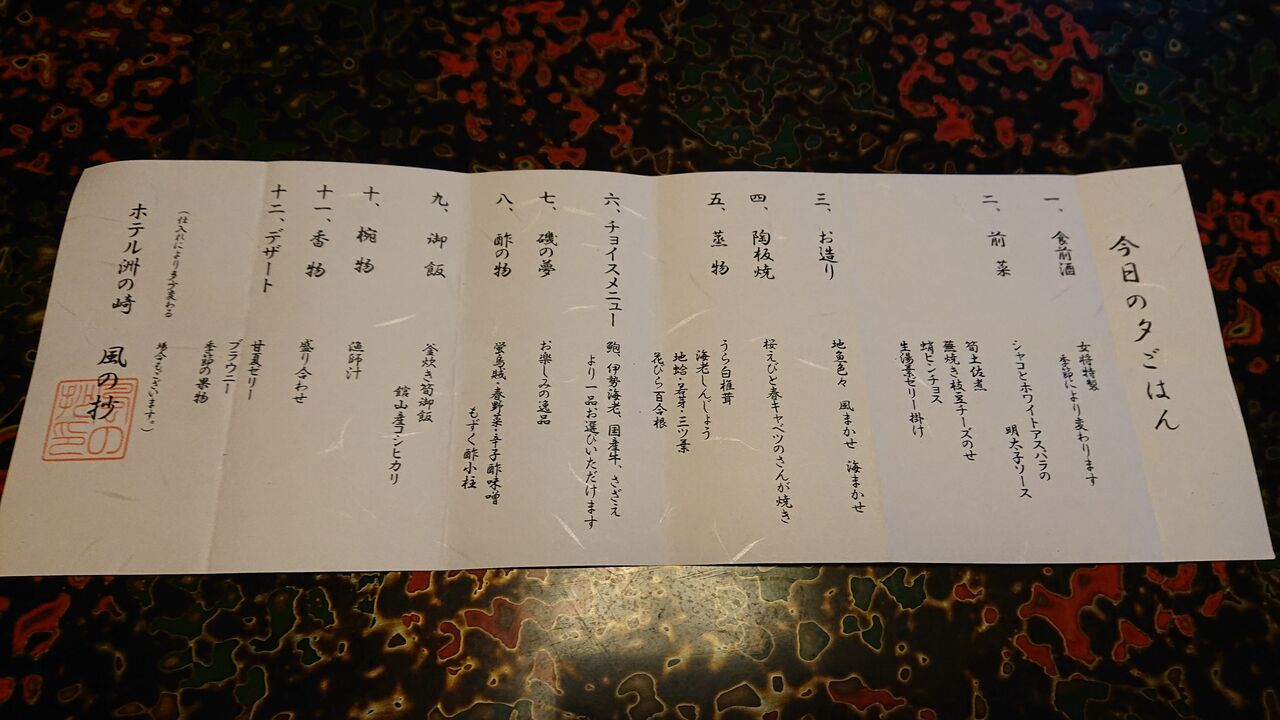 今日の夕ごはん
一、食前酒
女将特製
季節により変わります
二、前菜
シャコとホワイトアスパラの
明太子ソース
筍土佐煮
蕪焼き枝豆チーズのせ
蛸ピンチョス
生湯葉ゼリー掛け
三、お造り
地魚色々 風まかせ 海まかせ
四、陶板焼
桜えびと春キャベツのさんが焼き
五、蒸物
うら白椎茸
海老しんじょう
地蛤・若芽・三ツ葉
花びら百合根
六、チョイスメニュー
鮑、伊勢海老、国産牛、さざえ
より一品お選びいただけます
七、磯の夢
お楽しみの逸品
八、酢の物
蛍烏賊・春野菜・辛子酢味噌
もずく酢小柱
九、御飯
釜炊き筍御飯
館山産コシヒカリ
十、椀物
漁師汁
十一、香物
盛り合わせ
十二、デザート
甘夏ゼリー
ブラウニー
季節の果物
(仕入れにより多少変わる
場合もございます。)
ホテル洲の崎 風の抄